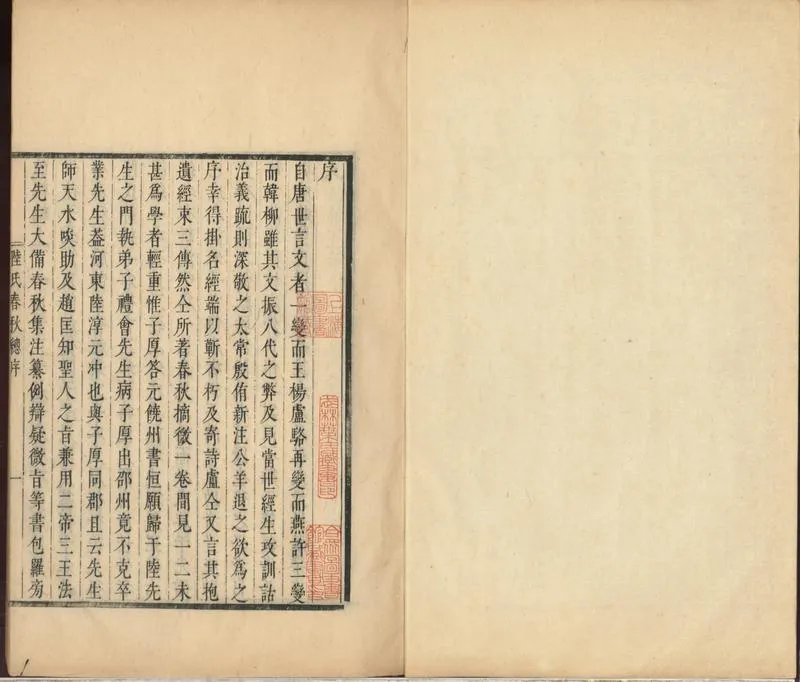 序
自唐世言文者一變而王楊盧駱再變而燕許三變
而韓柳雖其文振八代之弊及見當世經生攻訓詁
治義䟽則深敬之太常殷侑新注公羊退之欲爲之
序幸得掛名經端以蘄不朽及寄詩盧仝又言其抱
遺經束三傳然仝所著春秋摘微一卷間見一二未
甚爲學者輕重惟子厚答元饒州書恒願歸于陸先
生之門執弟子禮會先生病子厚出邵州竟不克卒
業先生葢河東陸淳元冲也與子厚同郡且云先生
師天水啖助及趙匡知聖人之㫖兼用二帝三王法
至先生大備春秋集注纂例辯疑微㫖等書包羅旁
陸氏春秋總序
一